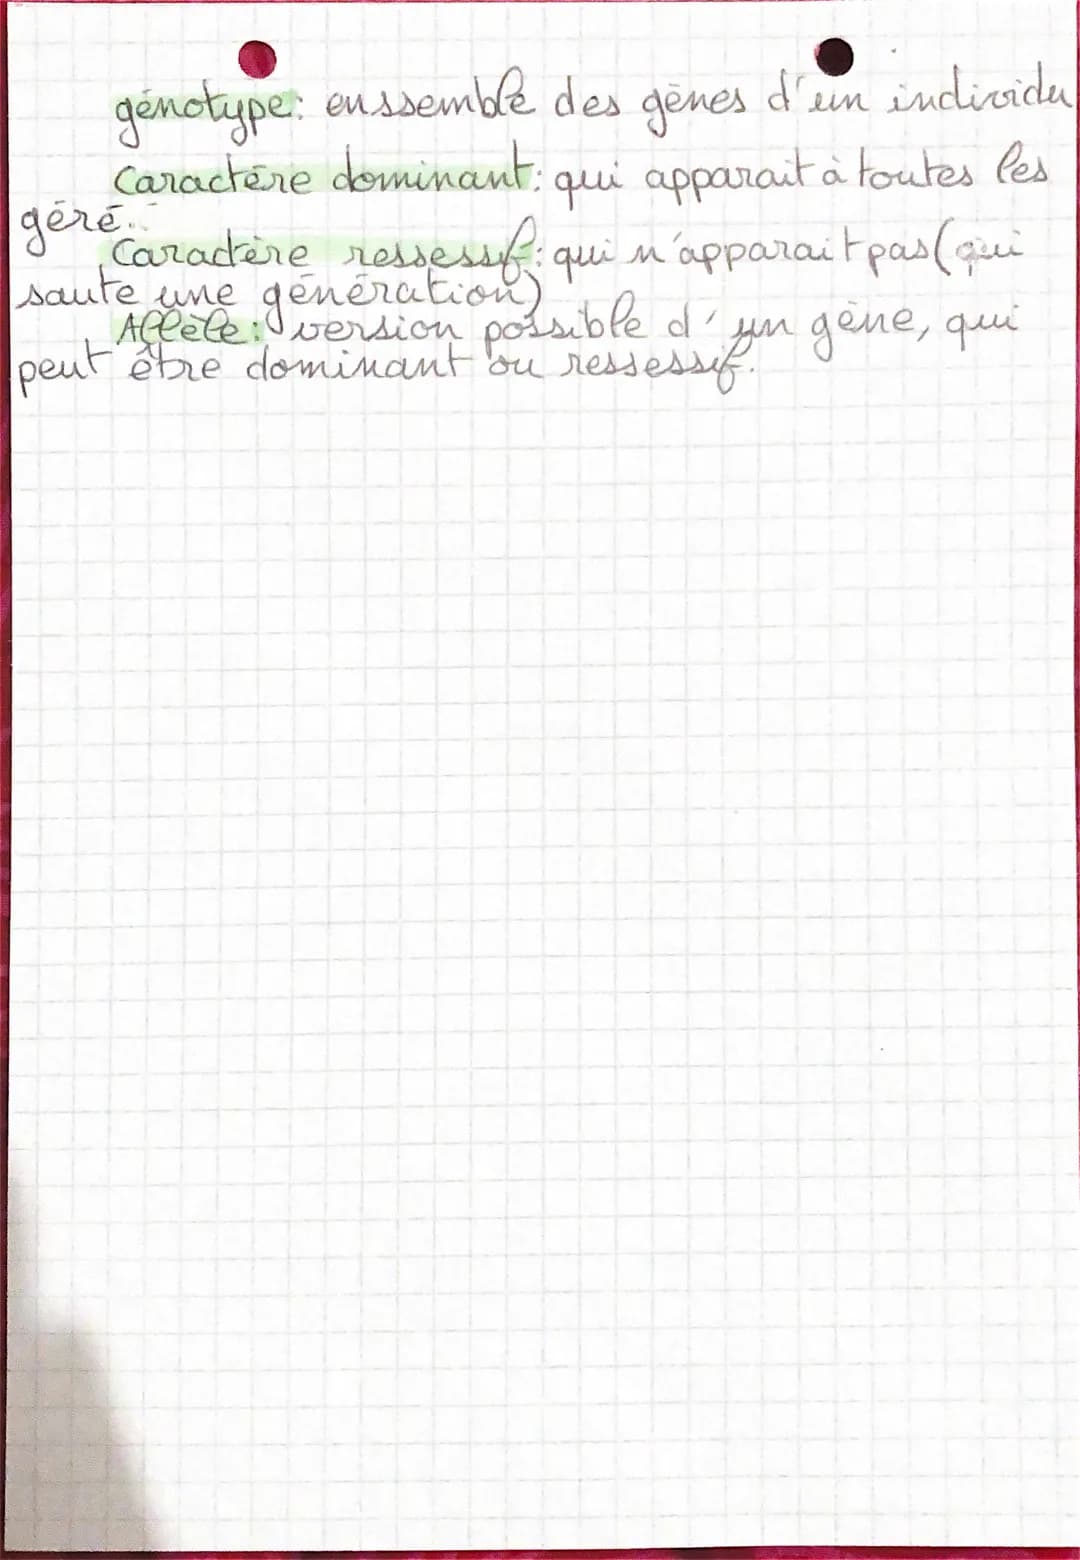 génotype: enssemble des gènes d'un individu
Caractère dominant: qui apparait à toutes les
géré..
Caractère ressessif: qui n'apparait pas (qui
saute une génération)
Allèle: version possible d'un gène, qui
peut être dominant ou ressessif.